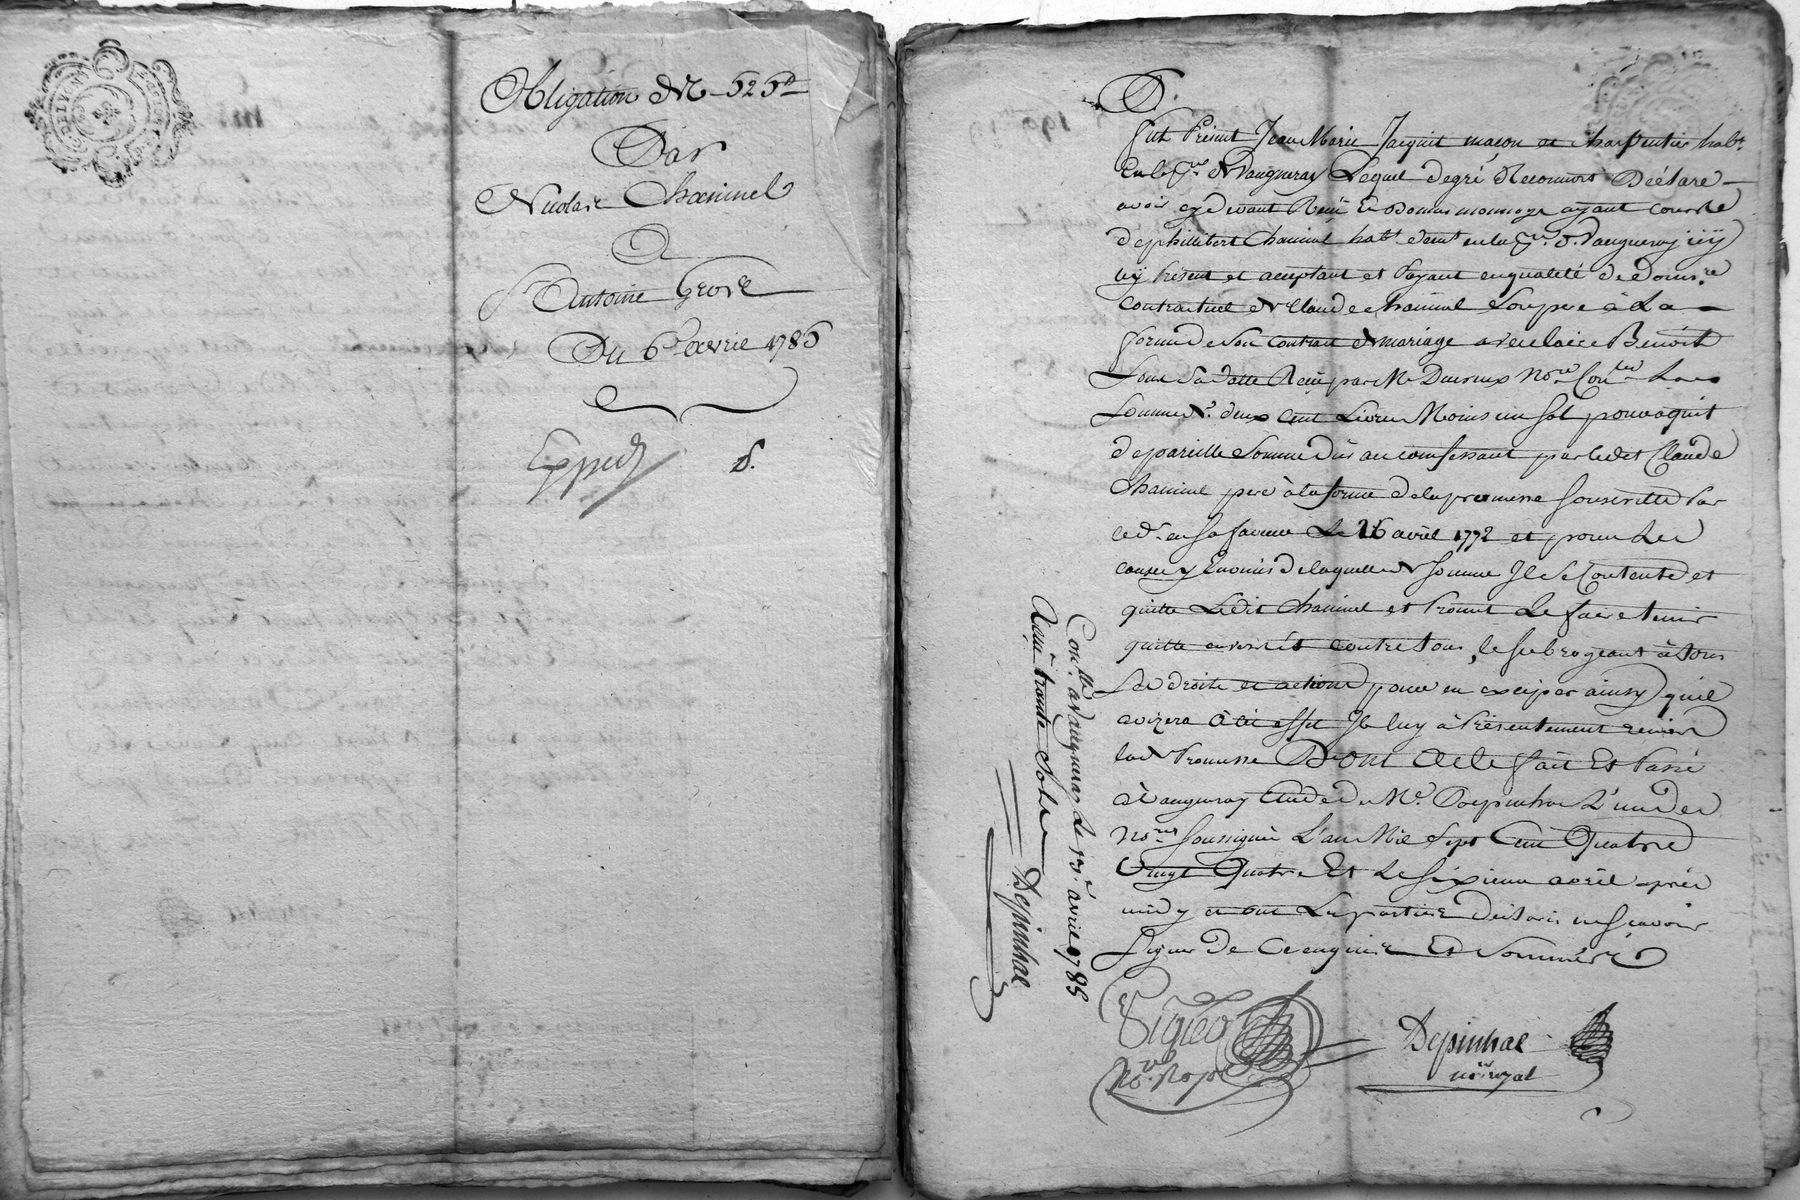 Obligation De 525lt
Par
Nicolas Chaninel
A
Antoine Grosse
Du 6e avril 1785
Exped
d.
Fut Présent Jean Marie Jacquit maçon et charpentier habt
en la pse de Vaugneray Lequel de gré a Reconnu et Déclare
avoir cy devant Reçu en Bonne monnoye ayant cours Re
de phillibert Chaninel habt demt en la pse d. Vaugneray icy
present et acceptant et Payant en qualité de Donnre
contractuel de Claude Chaninel Son pere à La
forme de Son Contract de mariage avec claire Benoit
Sous Sa datte Reçu par Me Nore Con.lee La
Somme de deux cent Livres Moins un Sol pour aquit
de pareille Somme düe au confessant par ledit Claude
Chaninel pere à la forme de la promesse Souscritte Par
led. en Sa faveur Le 26 avril 1772 et pour Les
causes y Enoncés de laquelle de Somme Il Se Contente et
quitte Ledit Chaninel et Promet Le faire tenir
quitte envers et contre tous, le Subrogeant à tous
Ses droits et actions pour en exciper ainsy qu'il
avizera à cet effet Il luy à Présentement remis
lad. Promesse Dont Acte Fait Et Passé
à Vaugneray Etude de Me Depinhac L'un des
nores Soussignés L'an Mil Sept Cent Quatre
Vingt Quatre Et Le Sixieme avril après
midy et ont Les parties declaré ne Scavoir
Signer De Ce enquises Et Sommées
Conlle. a Vaugneray Le 13e. avril 1785
Reçu trante Sols
Depinhac
Nore
Depinhac
nore royal